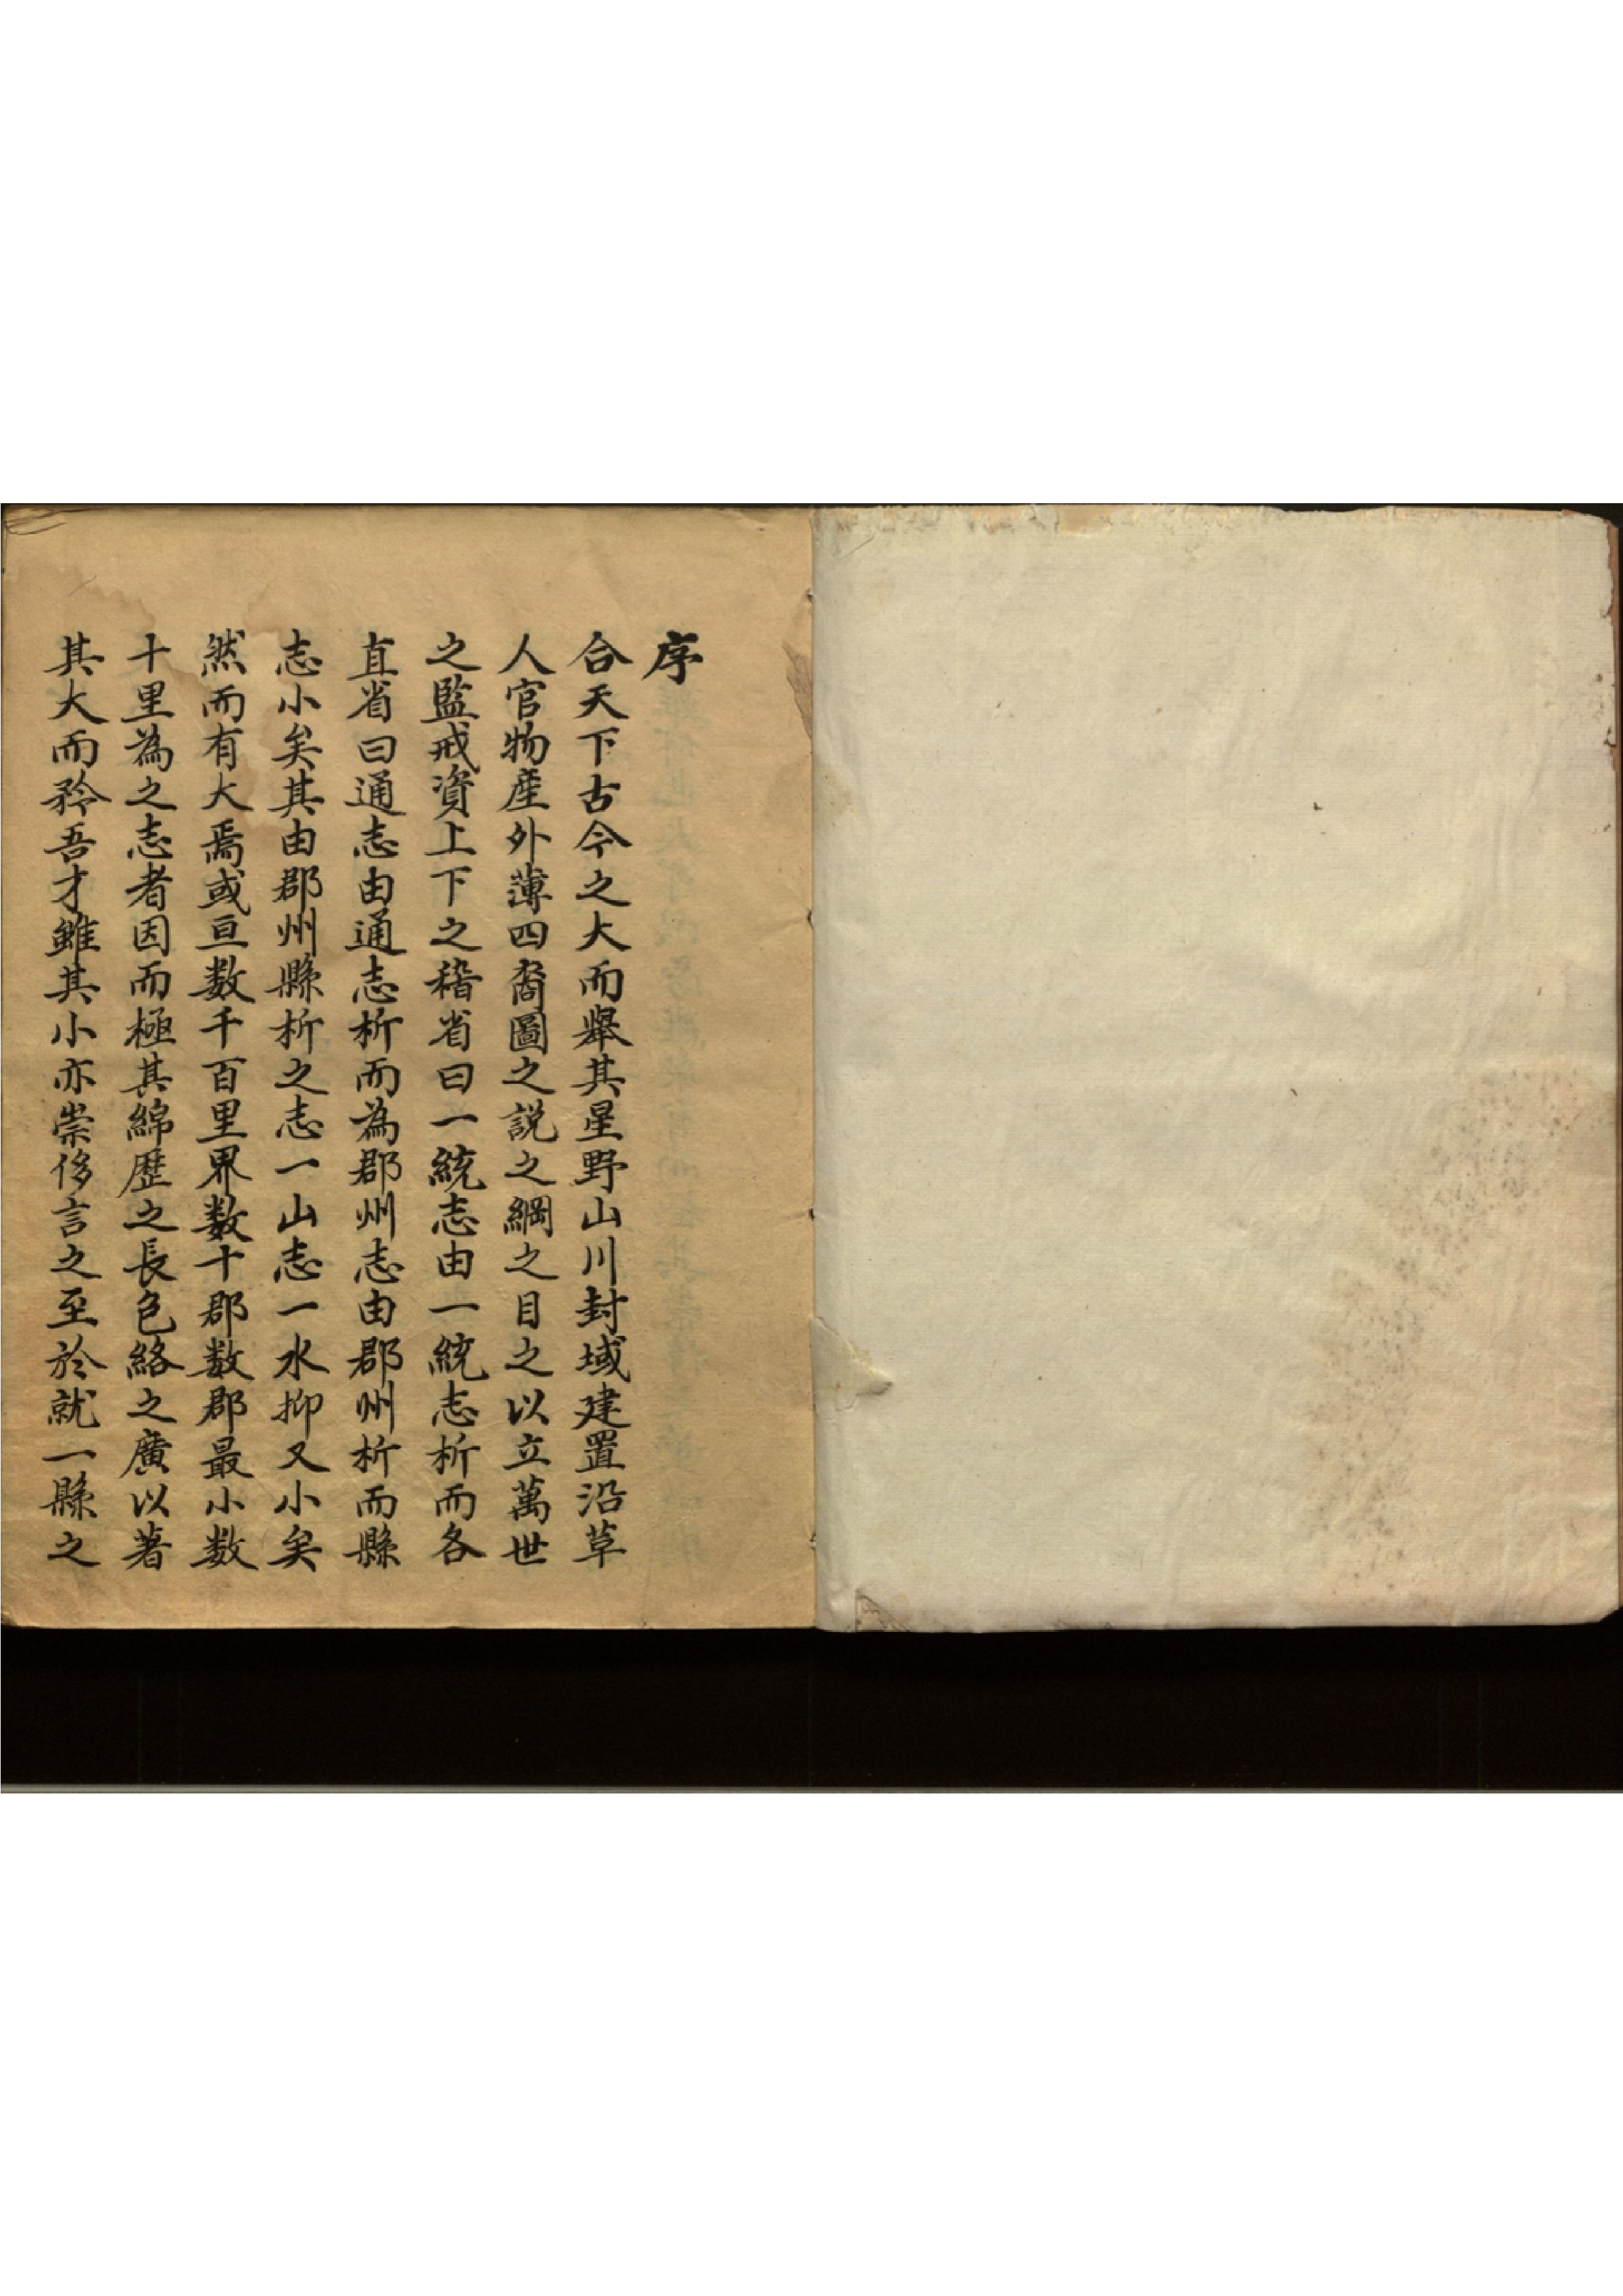 序
合天下古今之大而舉其星野山川封域建置沿草
人官物産外薄四裔圖之説之綱之目之以立萬世
之監戒資上下之稽省曰一統志由一統志析而各
直省曰通志由通志析而為郡州志由郡州析而縣
志小矣其由郡州縣析之志一山志一水抑又小矣
然而有大焉或亘数千百里界数十郡数郡最小数
十里為之志者因而極其綿歷之長色絡之廣以著
其大而矜吾才雖其小亦崇侈言之至於就一縣之